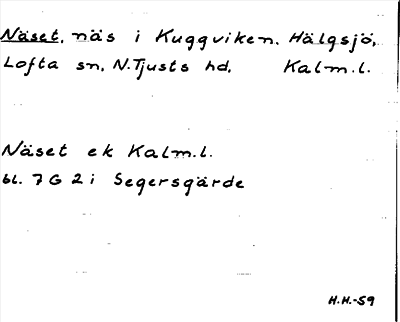 Näset, näs i Kuggviken, Hälgsjö,
Lofta sn, N.Tjusts hd, Kalm.l.
Näset ek Kalm.l.
bl. 7 G 2 i Segersgärde
H.H.-59